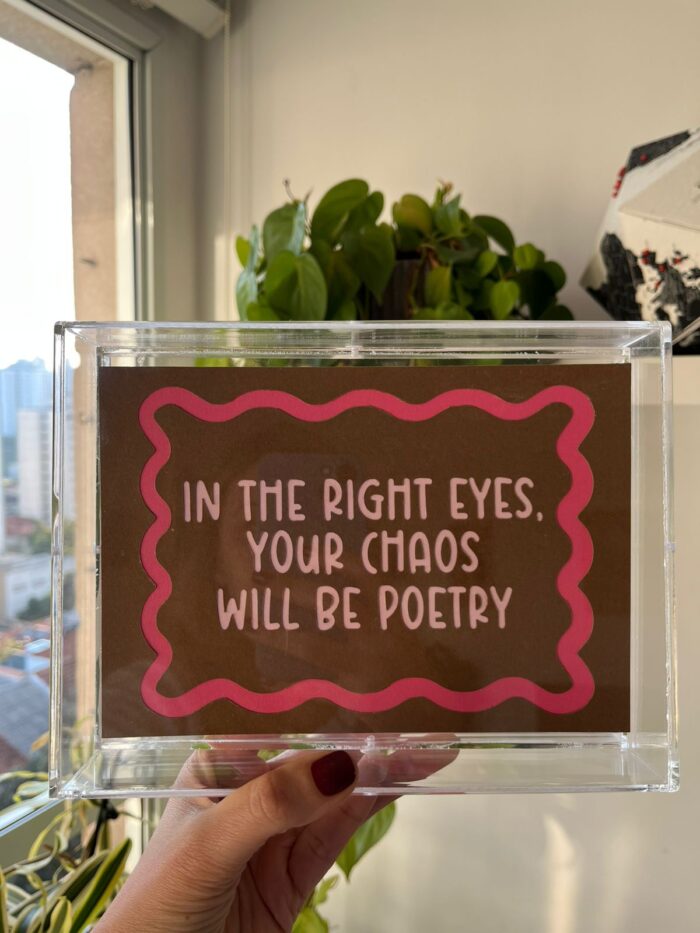 IN THE RIGHT EYES,
YOUR CHAOS
WILL BE POETRY